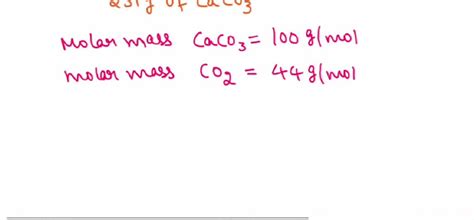 of CaCO₃
Molar mass CaCO₃ = 100 g/mol
molar mass CO₂ = 44 g/mol